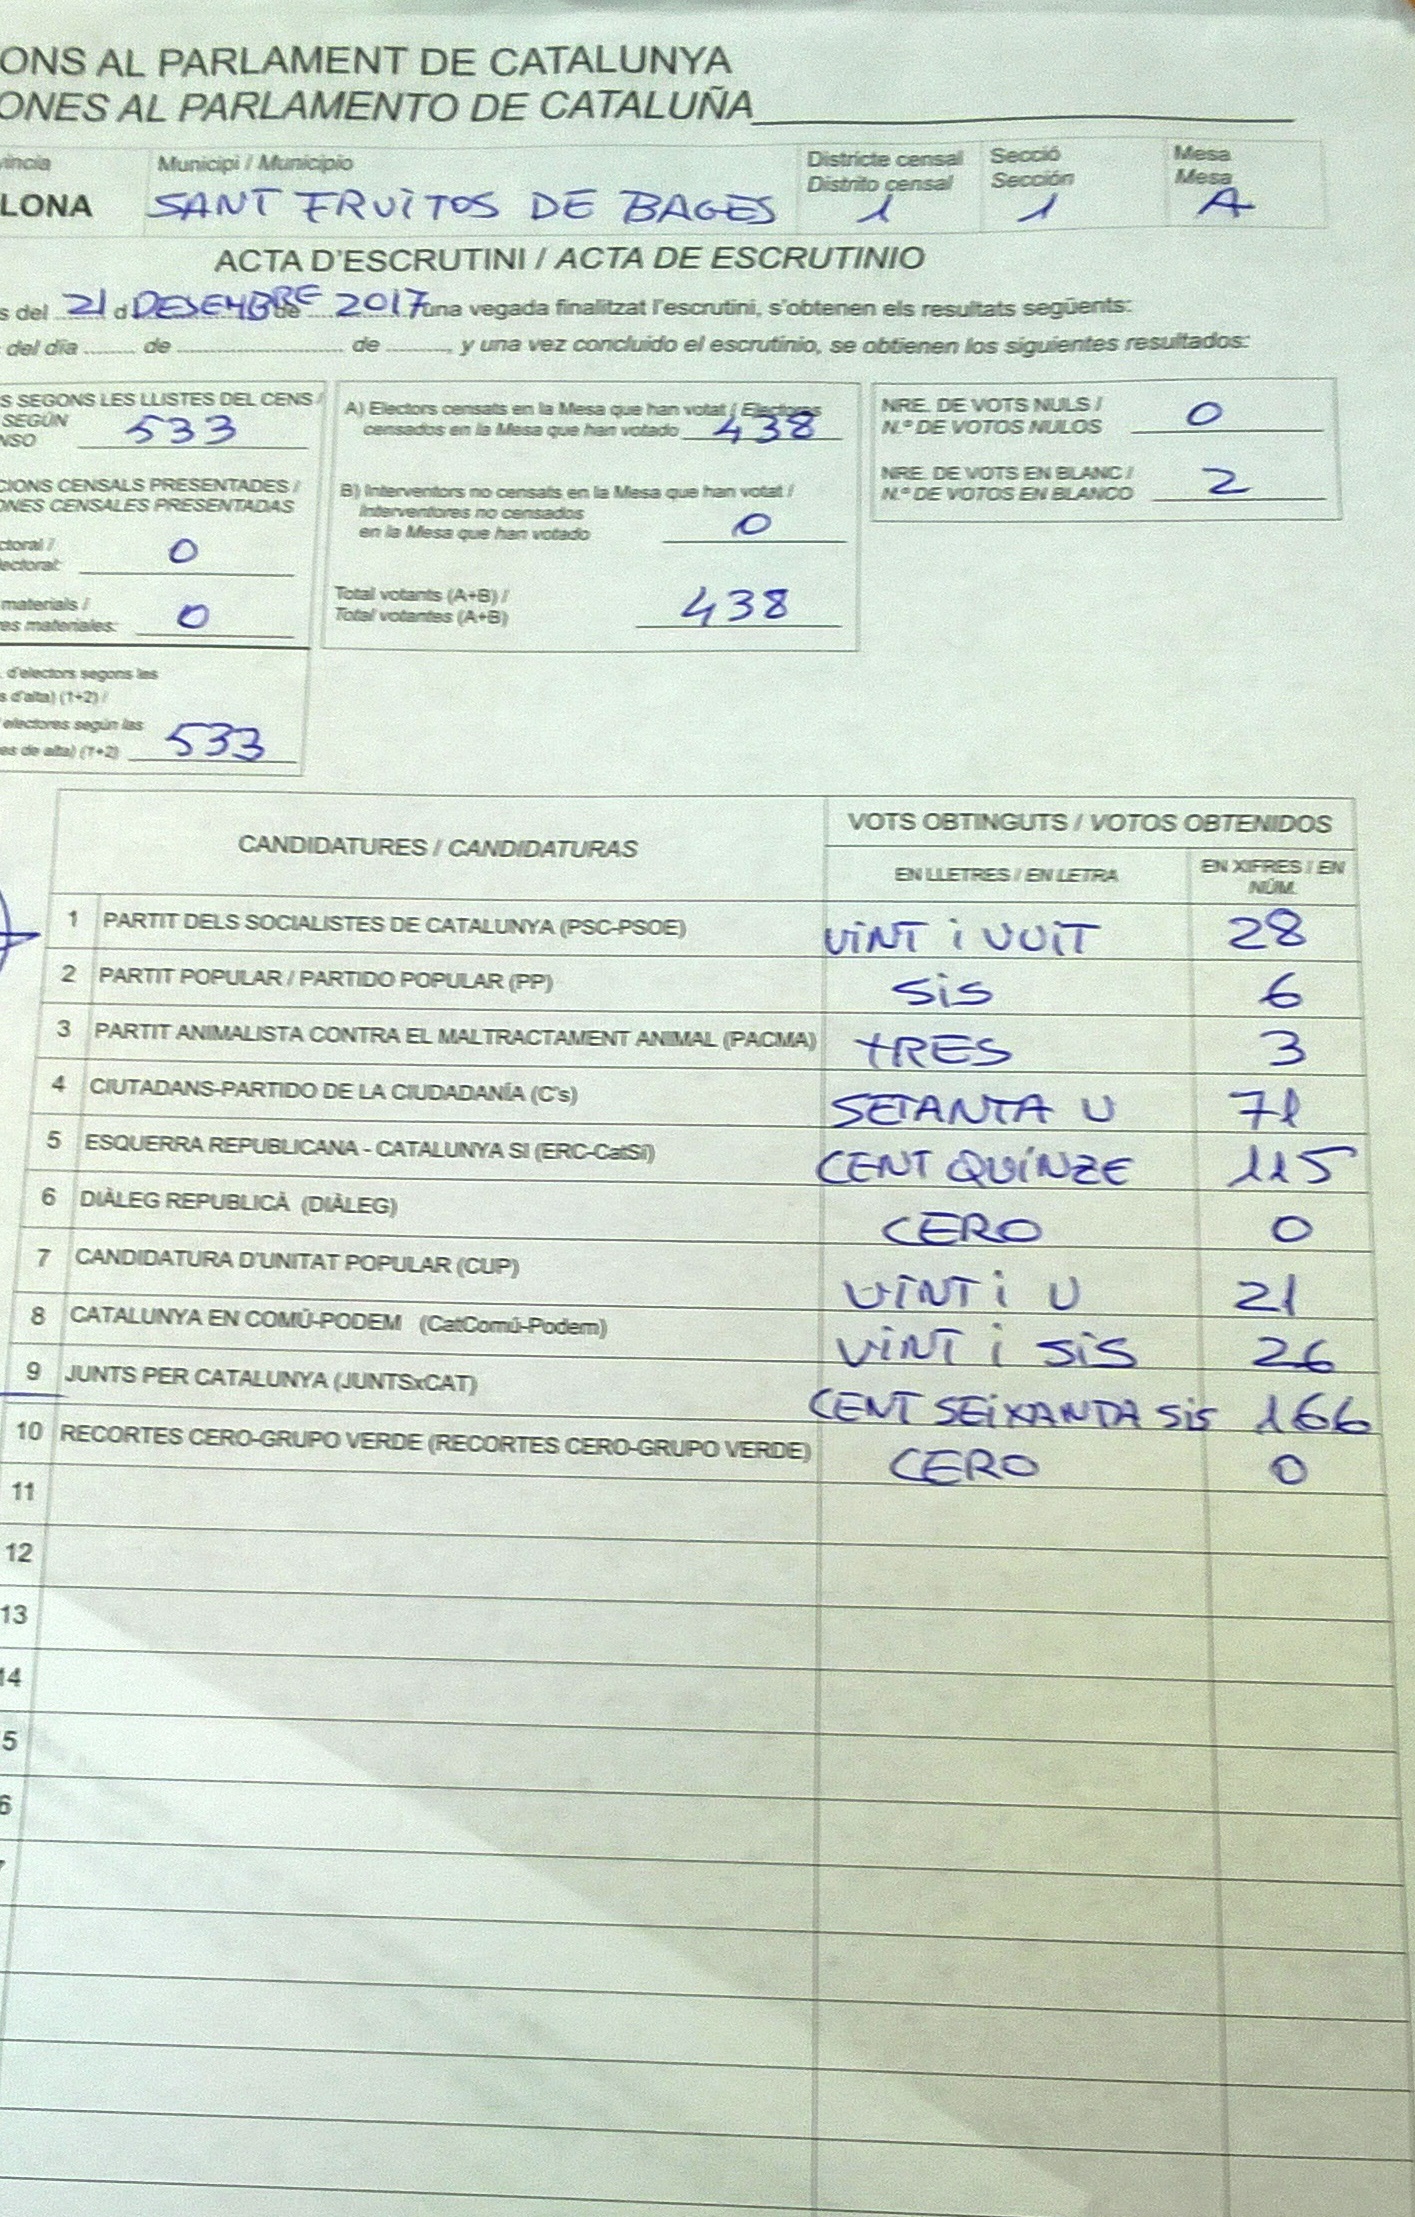 ONS AL PARLAMENT DE CATALUNYA
ONES AL PARLAMENTO DE CATALUÑA
víncia Municipi / Municipio Districte censal Secció Mesa
Distrito censal Sección Mesa
LONA SANT FRUITOS DE BAGES 1 1 A
ACTA D'ESCRUTINI / ACTA DE ESCRUTINIO
s del 21 d DESEMBRE de 2017 una vegada finalitzat l'escrutini, s'obtenen els resultats següents:
del día ........ de ........................ de ........, y una vez concluido el escrutinio, se obtienen los siguientes resultados:
S SEGONS LES LLISTES DEL CENS /
SEGÚN
NSO 533
CIONS CENSALS PRESENTADES /
ONES CENSALES PRESENTADAS
ctoral /
ectoral: 0
materials /
es materiales: 0
d'electors segons les
s d'alta) (1+2) /
electores según las
es de alta) (1+2) 533
A) Electors censats en la Mesa que han votat / Electores
censados en la Mesa que han votado 438
B) Interventors no censats en la Mesa que han votat /
Interventores no censados
en la Mesa que han votado 0
Total votants (A+B) /
Total votantes (A+B) 438
NRE. DE VOTS NULS /
N.º DE VOTOS NULOS 0
NRE. DE VOTS EN BLANC /
N.º DE VOTOS EN BLANCO 2
CANDIDATURES / CANDIDATURAS VOTS OBTINGUTS / VOTOS OBTENIDOS
EN LLETRES / EN LETRA EN XIFRES / EN
NÚM.
1 PARTIT DELS SOCIALISTES DE CATALUNYA (PSC-PSOE) VINT i VUIT 28
2 PARTIT POPULAR / PARTIDO POPULAR (PP) SIS 6
3 PARTIT ANIMALISTA CONTRA EL MALTRACTAMENT ANIMAL (PACMA) TRES 3
4 CIUTADANS-PARTIDO DE LA CIUDADANÍA (C's) SETANTA U 71
5 ESQUERRA REPUBLICANA - CATALUNYA SI (ERC-CatSí) CENT QUINZE 115
6 DIÀLEG REPUBLICÀ (DIÀLEG) CERO 0
7 CANDIDATURA D'UNITAT POPULAR (CUP) VINT i U 21
8 CATALUNYA EN COMÚ-PODEM (CatComú-Podem) VINT i SIS 26
9 JUNTS PER CATALUNYA (JUNTSxCAT) CENT SEIXANTA SIS 166
10 RECORTES CERO-GRUPO VERDE (RECORTES CERO-GRUPO VERDE) CERO 0
11
12
13
14
5
6